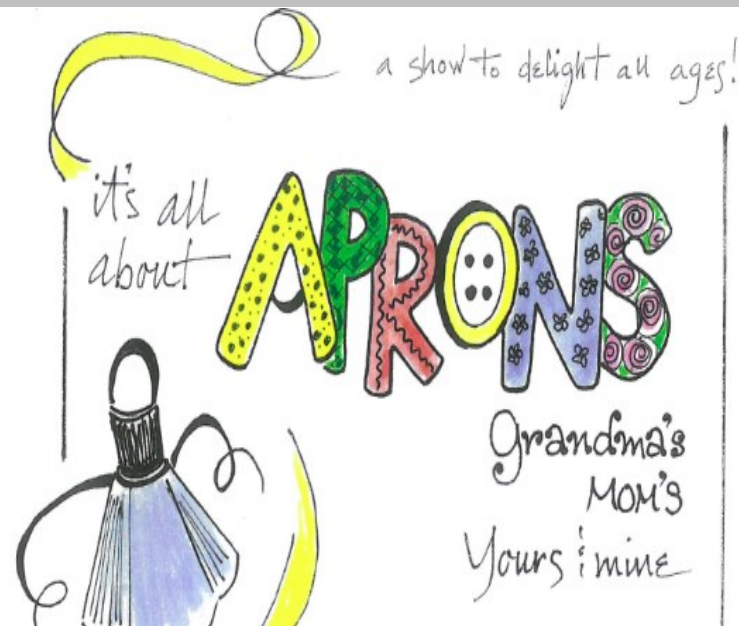 a show to delight all ages!
it's all
about
APRONS
Grandma's
MOM'S
Yours & mine